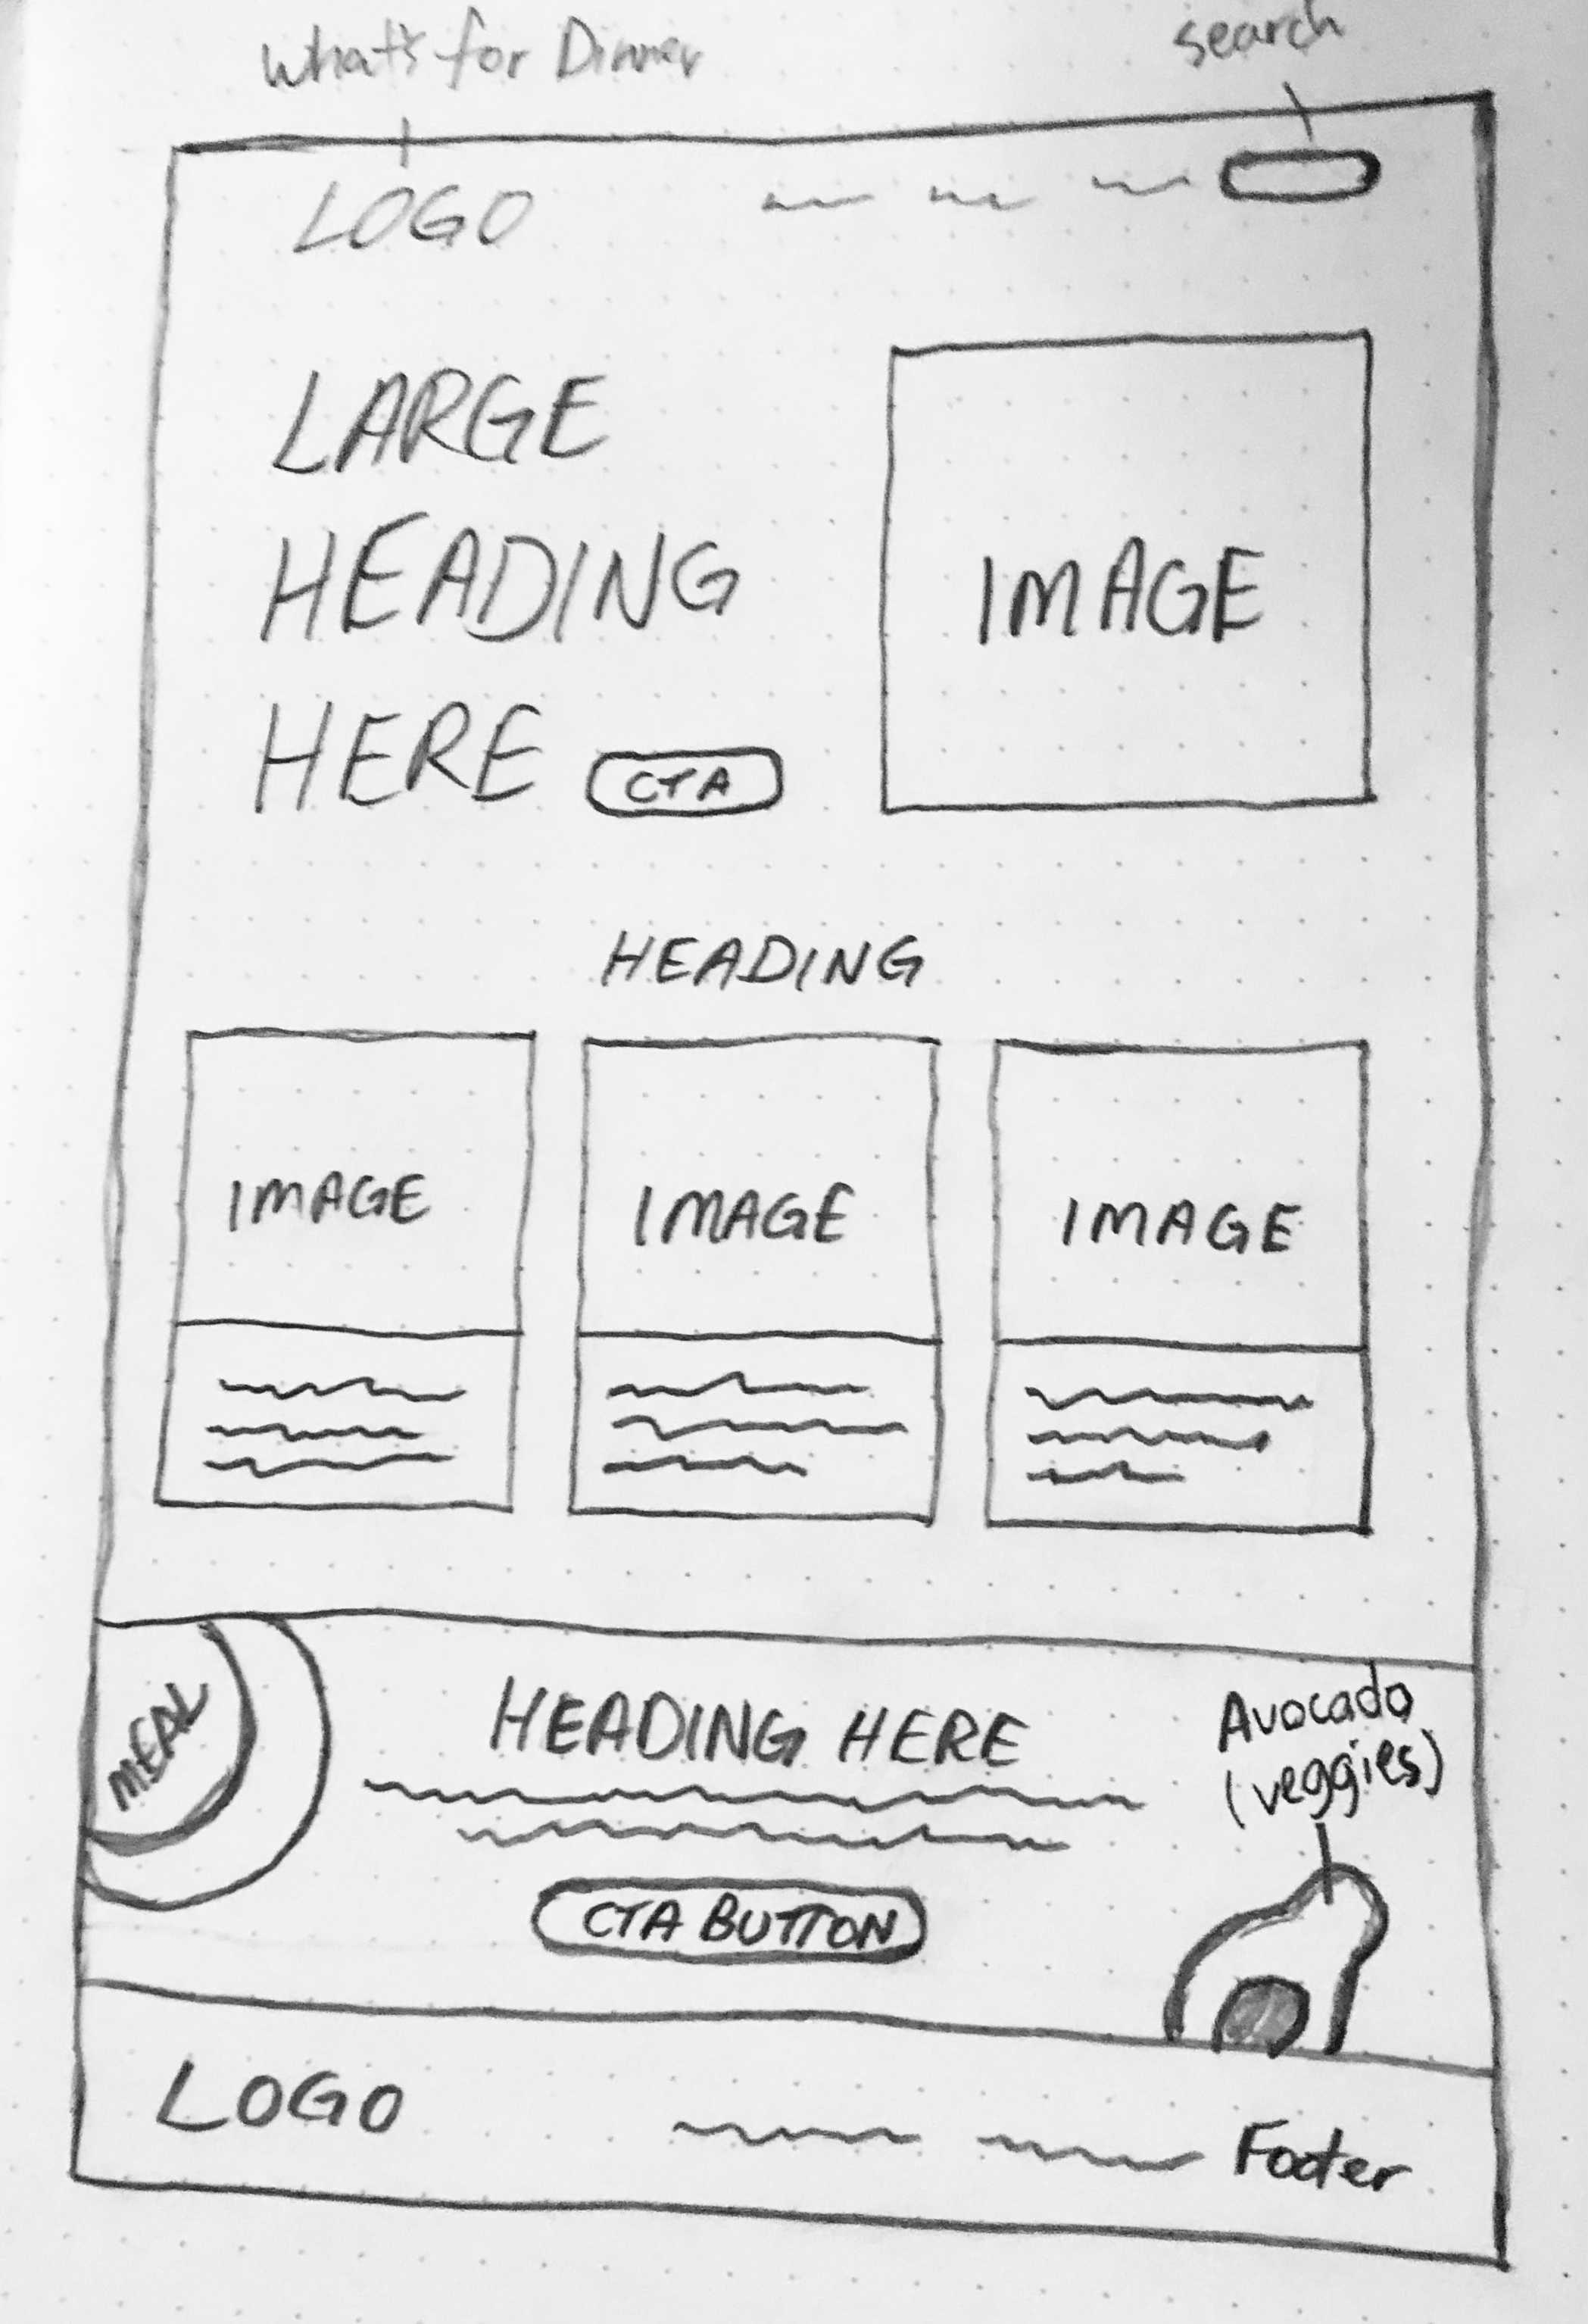 What's for Dinner
search
LOGO
LARGE
HEADING
HERE
CTA
IMAGE
HEADING
IMAGE
IMAGE
IMAGE
MEAL
HEADING HERE
CTA BUTTON
Avocado
(veggies)
LOGO
Footer